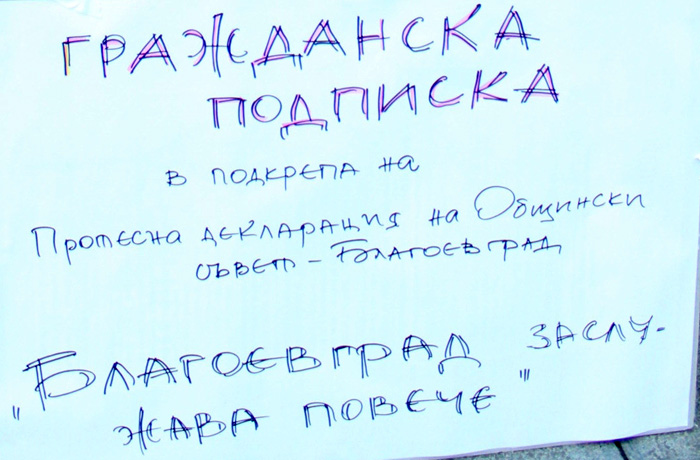 ГРАЖДАНСКА
ПОДПИСКА
в подкрепа на
Протесна декларация на Общински
съвет – Благоевград
„Благоевград заслу-
жава повече"